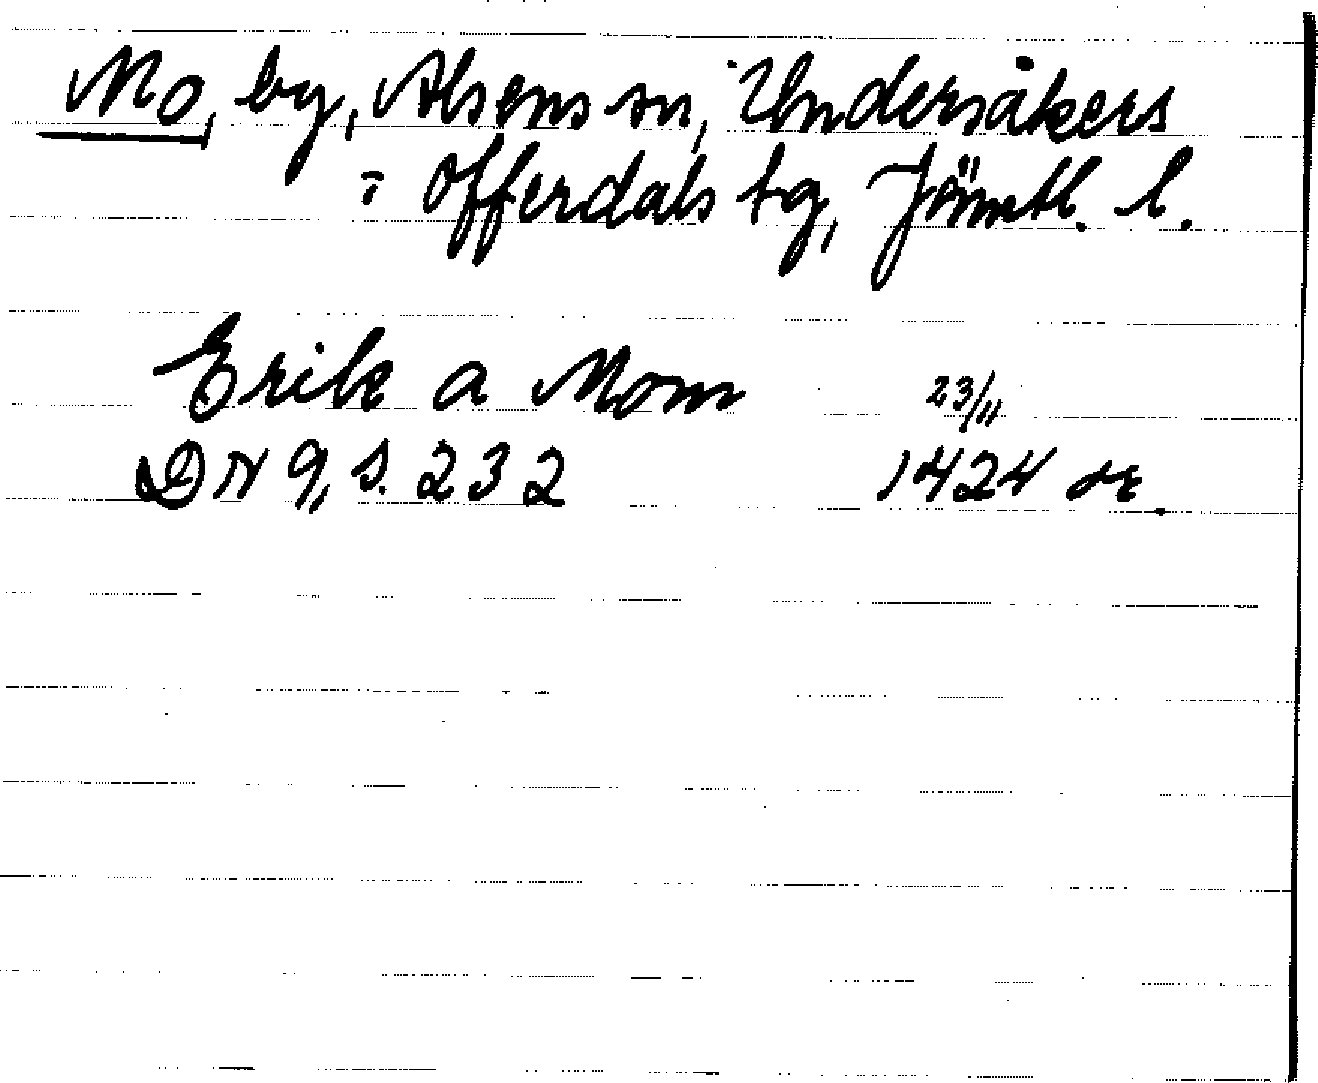 Mo, by, Alsens sn, Undersåkers
= Offerdals tg, Jämtl. l.
Erik a Mom 23/11
DN 9, s. 232 1424 or.